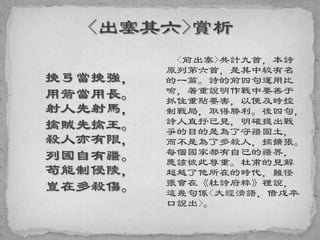 <出塞其六>賞析
挽弓當挽強，
用箭當用長。
射人先射馬，
擒賊先擒王。
殺人亦有限，
列國自有疆。
苟能制侵陵，
豈在多殺傷。
<前出塞>共計九首，本詩
原列第六首，是其中較有名
的一篇。詩的前四句運用比
喻，著重說明作戰中要善于
抓住重點要害，以便及時控
制戰局，取得勝利。後四句，
詩人直抒己見，明確提出戰
爭的目的是為了守疆固土，
而不是為了多殺人，搞擴張。
每個國家都有自己的疆界，
應該彼此尊重。杜甫的見解
超越了他所在的時代，難怪
張會在《杜詩府粹》裡說，
這幾句係<大經濟語，借戍卒
口說出>。